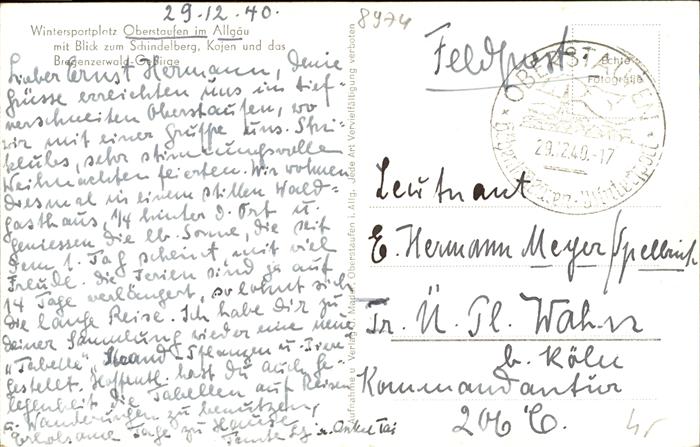 29.12.40.
Wintersportplatz Oberstaufen im Allgäu
mit Blick zum Schindelberg, Kojen und das
Bregenzerwald-Gebirge
Lieber Ernst Hermann, Deine
Grüsse erreichten uns im tief-
verschneiten Oberstaufen, wo
wir mit einer Gruppe uns. Ski-
klubs, sehr stimmungsvolle
Weihnachten feierten. Wir wohnen
diesmal in einem stillen Wald-
gasthaus, 1/4 hinter d. Ort u.
geniessen die lb. Sonne, die seit
dem 1. Tag scheint, mit viel
Freude. Die Ferien sind ja auf
14 Tage verlängert, so lohnt sich
die lange Reise. Ich habe Dir zu
deiner Sammlung wieder eine neue
"Tabelle" Strand Pflanzen u. Tiere
gestellt. Hoffentl. hast du auch Ge-
legenheit die Tabellen auf Reisen
u. Wanderungen zu benutzen,
Erholsame Tage zu Hause
Tante u. Onkel
Jede Art Vervielfältigung verboten
Oberstaufen i. Allg.
8974
Feldpost.
Echte
Fotografie
OBERSTAUFEN
29.12.40.-17
Leutnant
E. Hermann Meyer/Spelbrink
Tr. Ü. Pl. Wahn
b. Köln
Kommandantur
206 C.